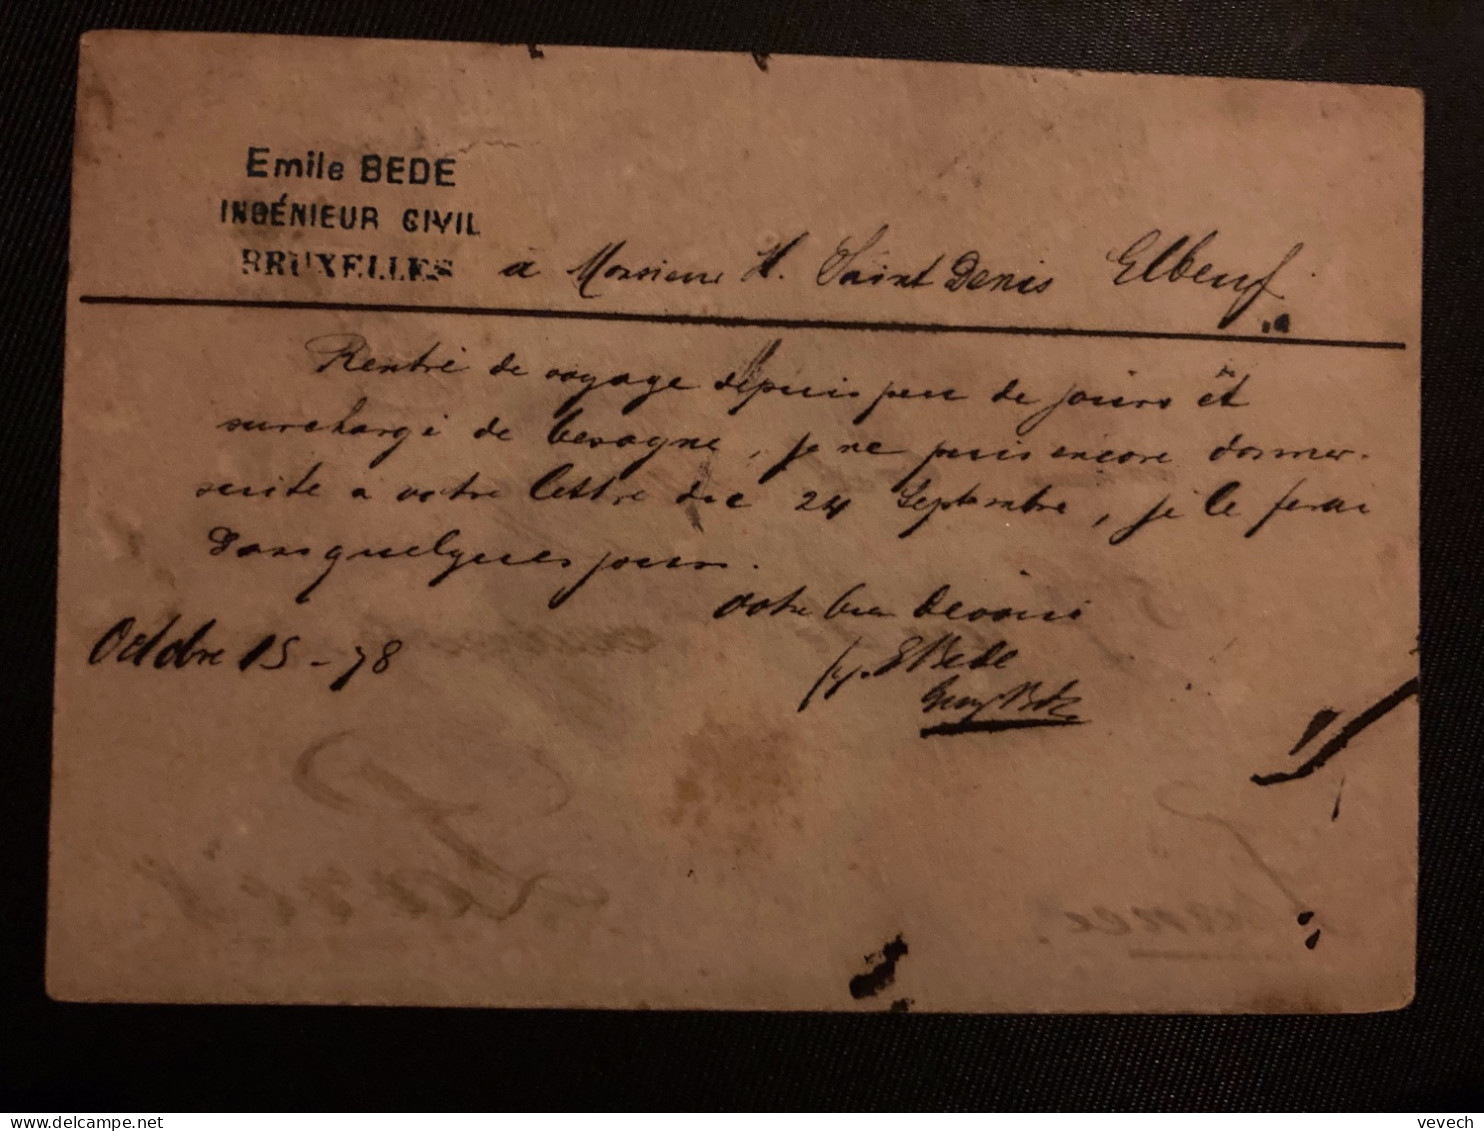 Emile BEDE
INGÉNIEUR CIVIL
BRUXELLES
à Monsieur H. Saint Denis Elbeuf
Rentré de voyage depuis peu de jours et
surchargé de besogne, je ne puis encore donner
suite à votre lettre du 24 Septembre, je le ferai
dans quelques jours.
votre bien dévoué
E Bede
Octobre 15 - 78
Paris
France
vevech